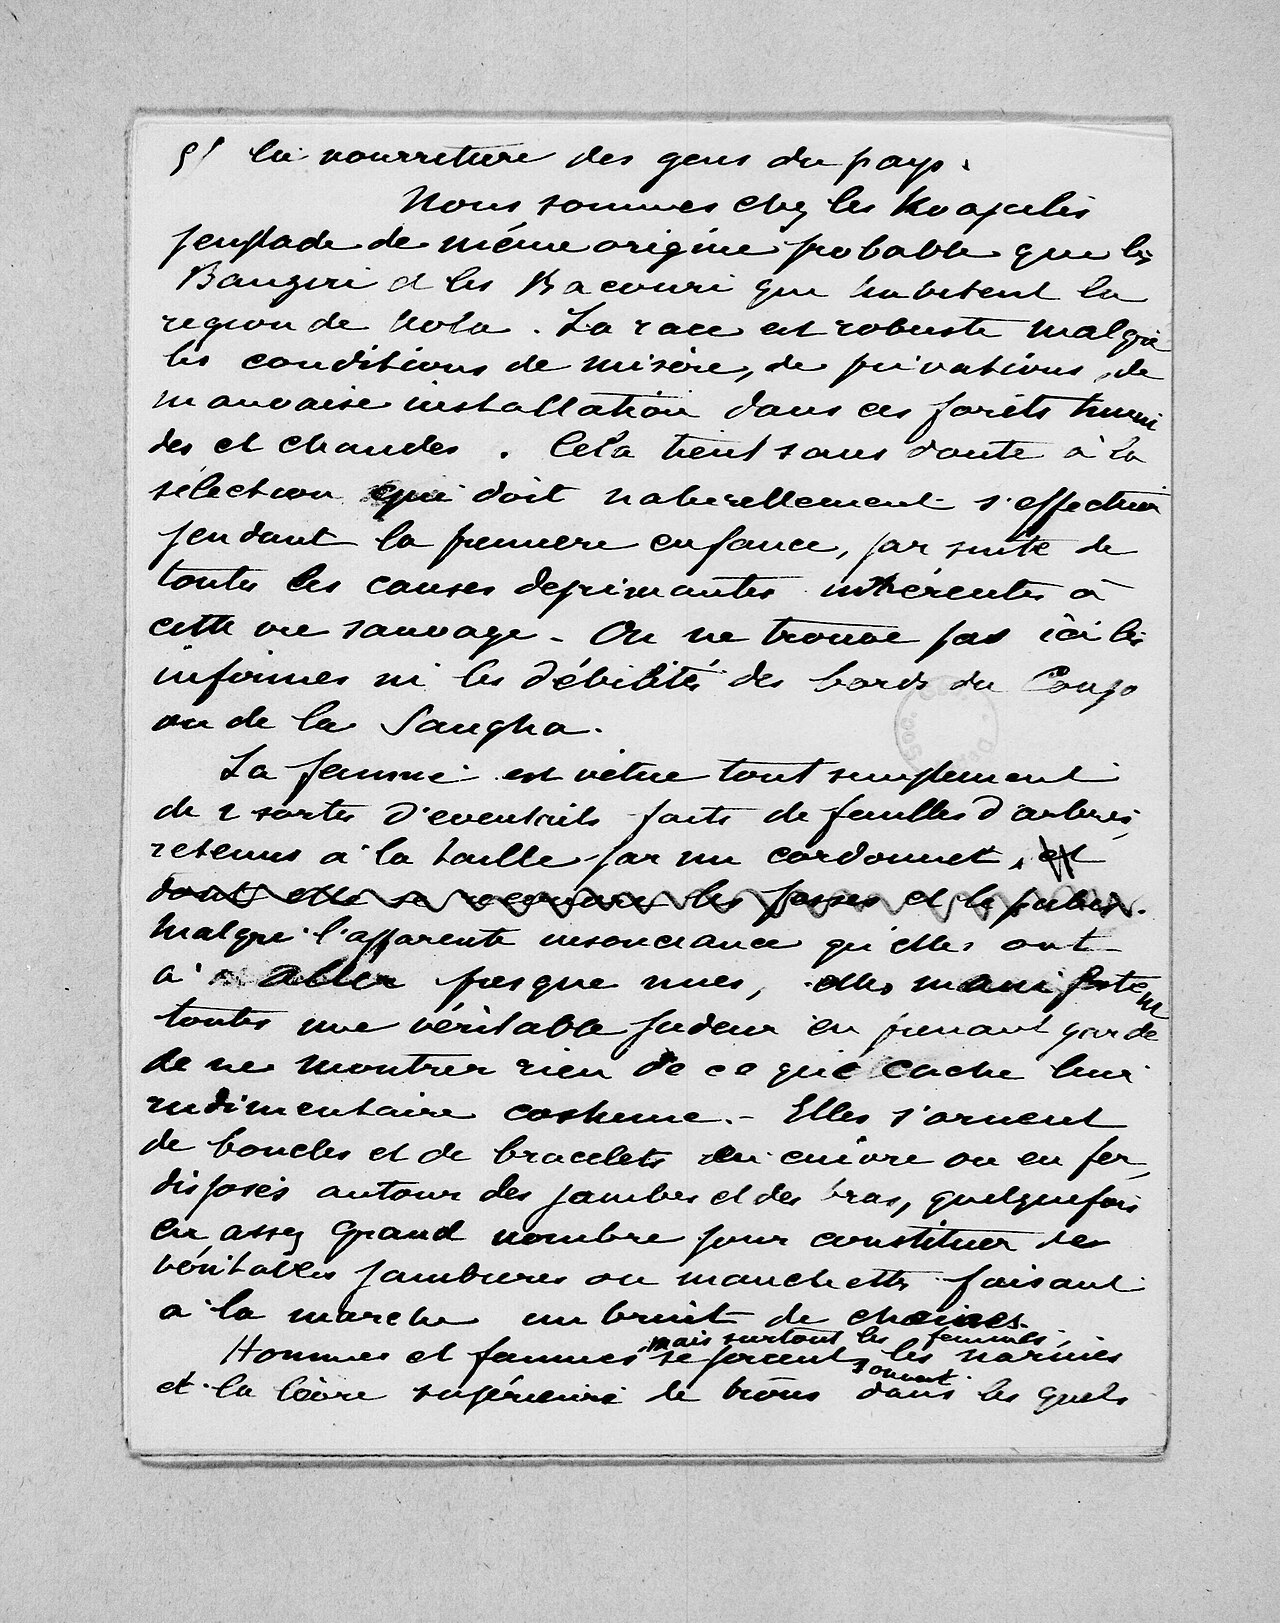 5/ la nourriture des gens du pays.
Nous sommes chez les
peuplade de même origine probable que les
Bangiri et les Bacouri qui habitent la
region de Nola. La race est robuste malgré
les conditions de misère, de privations, de
mauvaise installation dans ces forêts humi
des et chaudes. Cela tient sans doute à la
sélection qui doit naturellement s'effectuer
pendant la première enfance, par suite de
toutes les causes deprimantes inhérentes à
cette vie sauvage - On ne trouve pas ici les
infirmes ni les débilités des bords du Congo
ou de la Sangha.
La femme est vêtue tout simplement
de 2 sortes d'eventails faits de feuilles d'arbres,
retenus à la taille par un cordonnet, et
dont elle se recouvre les fesses et le pubis.
Malgré l'apparente insouciance qu'elles ont
à aller presque nues, elles manifestent
toutes une véritable pudeur en prenant garde
de ne montrer rien de ce que cache leur
rudimentaire costume. - Elles s'ornent
de boucles et de bracelets en cuivre ou en fer,
disposés autour des jambes et des bras, quelquefois
en assez grand nombre pour constituer de
véritables jambières ou manchettes faisant
à la marche un bruit de chaines.
mais surtout les femmes,
Hommes et femmes se percent les narines
souvent
et la lèvre supérieure de trous dans les quels